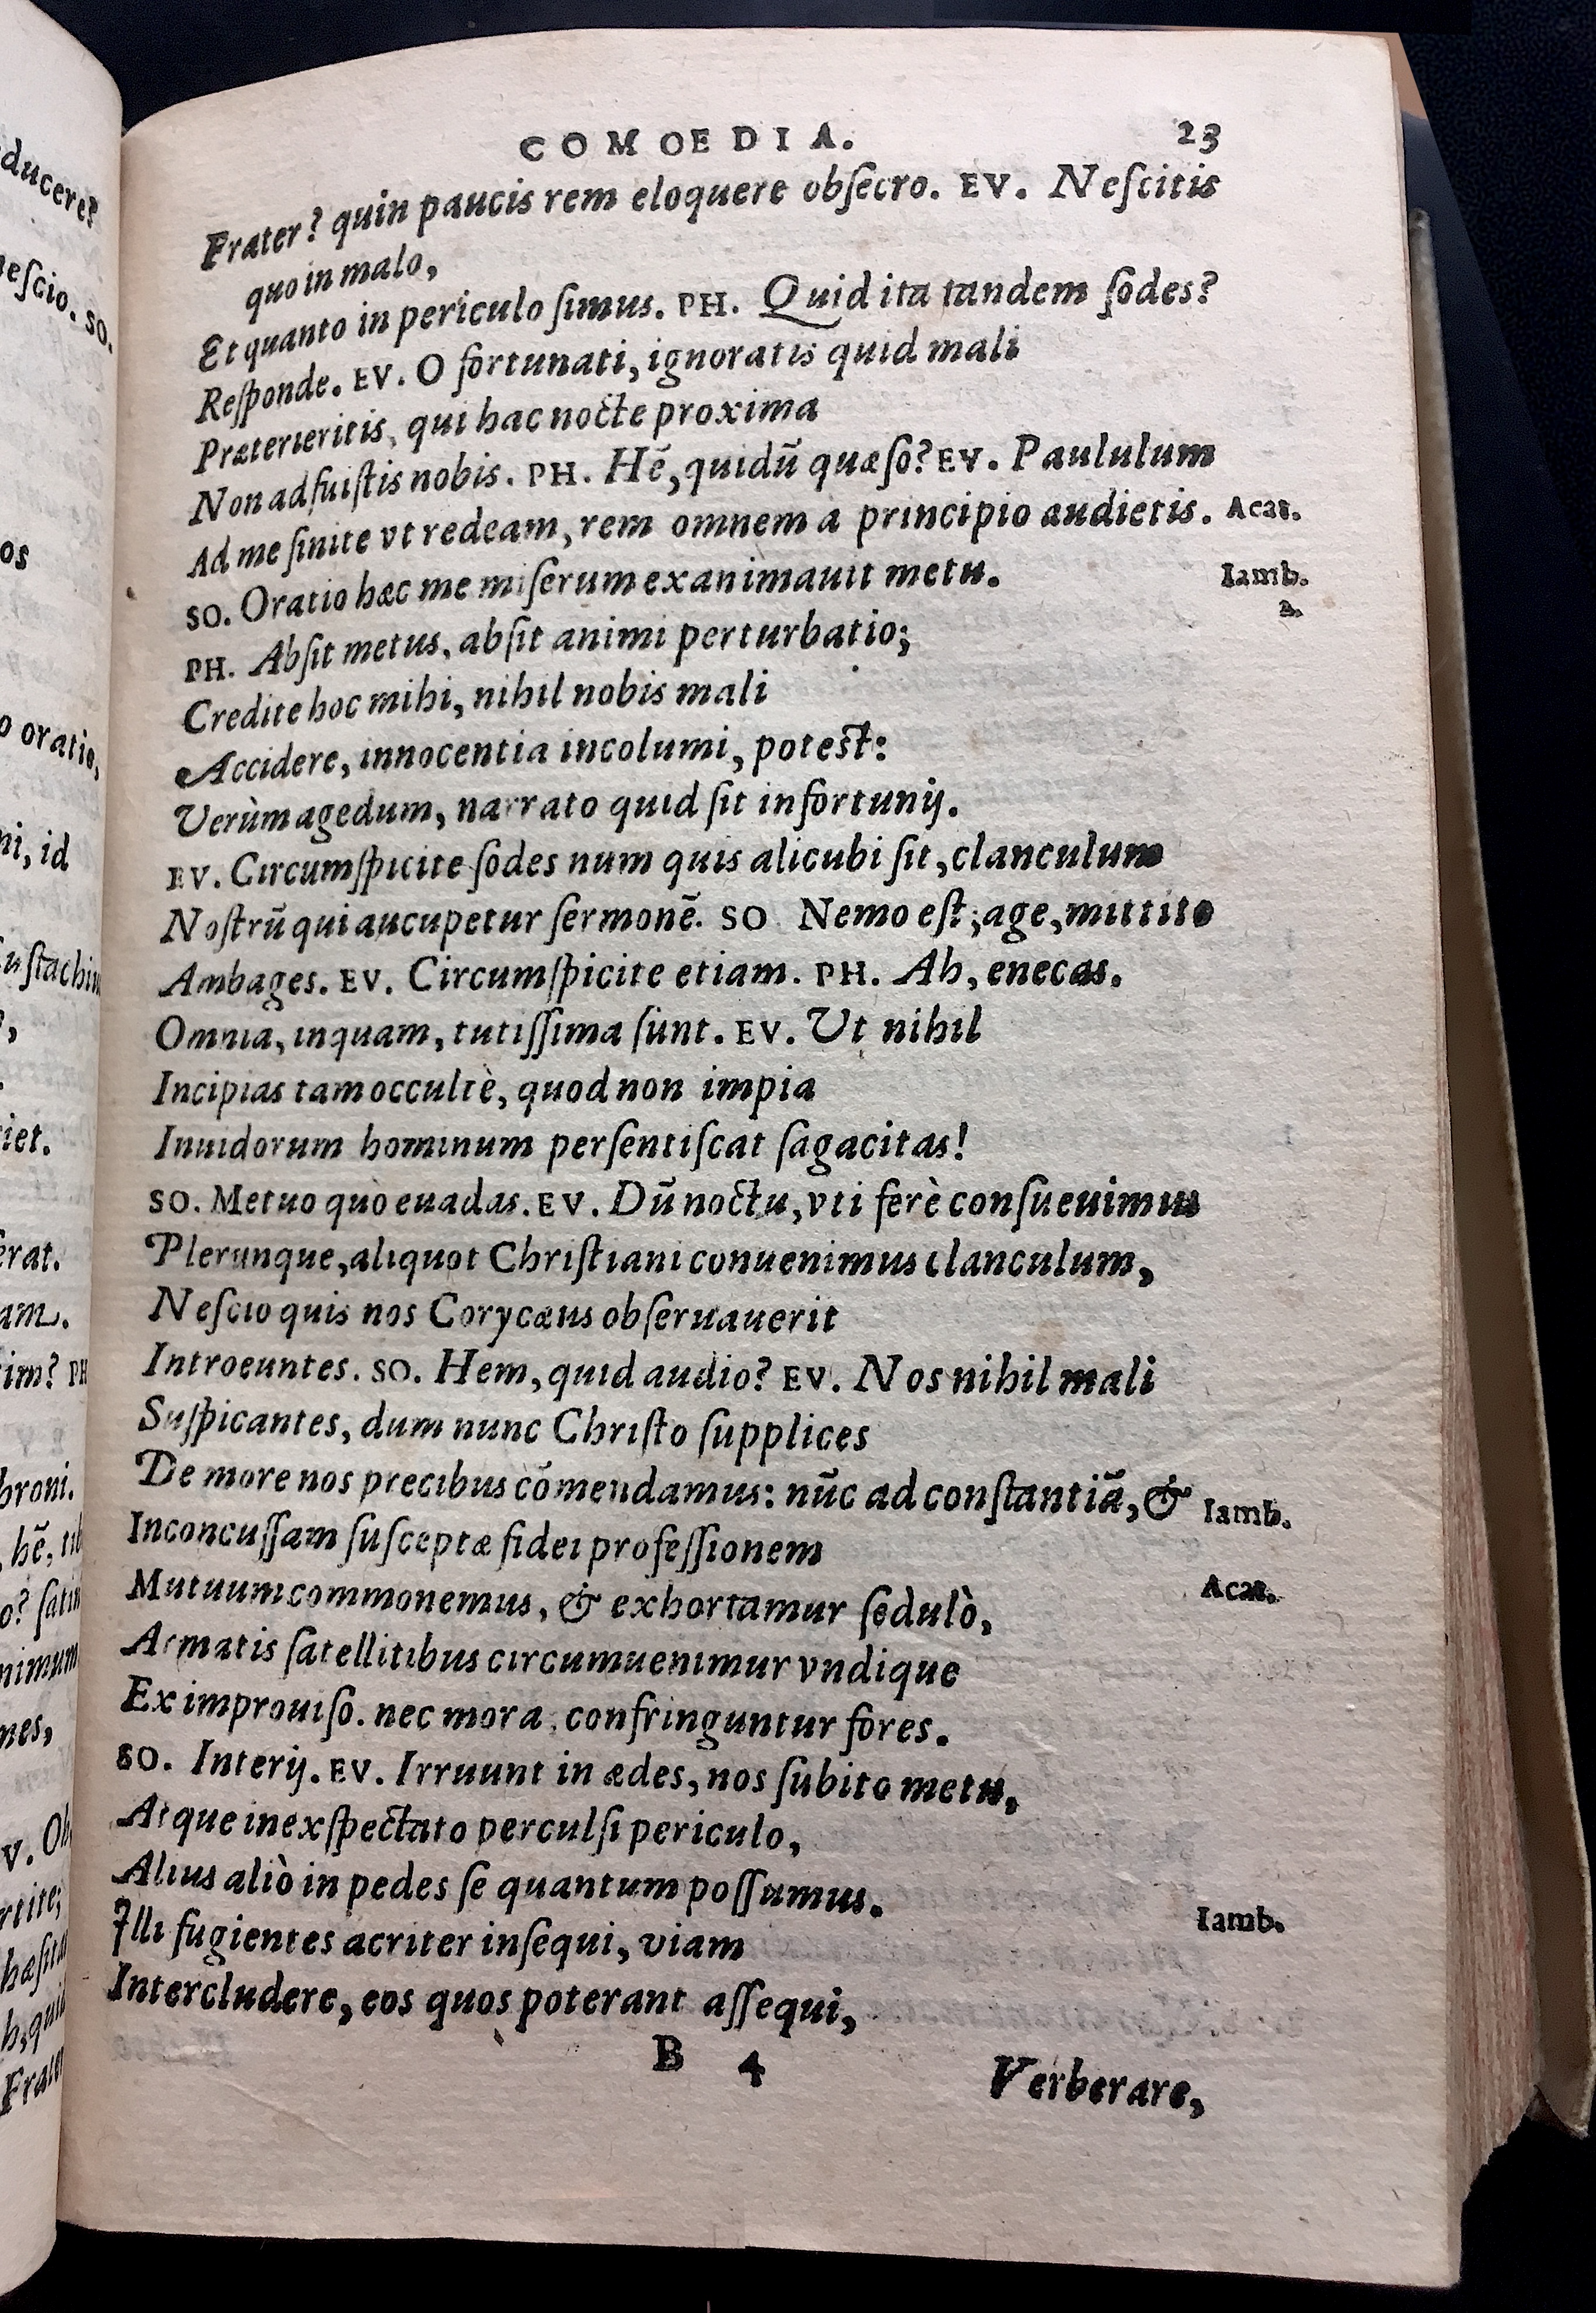 COMOEDIA. 23
Frater? quin paucis rem eloquere obſecro. EV. Neſcitis
quo in malo,
Et quanto in periculo ſimus. PH. Quid ita tandem ſodes?
Reſponde. EV. O fortunati, ignoratis quid mali
Præterieritis, qui hac nocte proxima
Non adfuiſtis nobis. PH. Hē, quidū quæſo? EV. Paululum
Ad me ſinite vt redeam, rem omnem à principio audietis. Acat.
SO. Oratio hæc me miſerum exanimauit metu. Iamb.
a.
PH. Abſit metus, abſit animi perturbatio;
Credite hoc mihi, nihil nobis mali
Accidere, innocentia incolumi, poteſt:
Verùm agedum, narrato quid ſit infortunij.
EV. Circumſpicite ſodes num quis alicubi ſit, clanculum
Noſtrū qui aucupetur ſermonē. SO Nemo eſt; age, mittito
Ambages. EV. Circumſpicite etiam. PH. Ah, enecas.
Omnia, inquam, tutiſſima ſunt. EV. Vt nihil
Incipias tam occultè, quod non impia
Inuidorum hominum perſentiſcat ſagacitas!
SO. Metuo quò euadas. EV. Dū noctu, vti ferè conſueuimus
Plerunque, aliquot Chriſtiani conuenimus clanculum,
Neſcio quis nos Corycæus obſeruauerit
Introeuntes. SO. Hem, quid audio? EV. Nos nihil mali
Suſpicantes, dum nunc Chriſto ſupplices
De more nos precibus cōmendamus: nūc ad conſtantiā, & Iamb.
Inconcuſſam ſuſceptæ fidei profeſſionem
Mutuum commonemus, & exhortamur ſedulò, Acat.
Armatis ſatellitibus circumuenimur vndique
Ex improuiſo. nec mora, confringuntur fores.
SO. Interij. EV. Irruunt in ædes, nos ſubito metu,
Atque inexſpectato perculſi periculo,
Alius aliò in pedes ſe quantum poſſumus.
Illi fugientes acriter inſequi, viam Iamb.
Intercludere, eos quos poterant aſſequi,
B 4
Verberare,